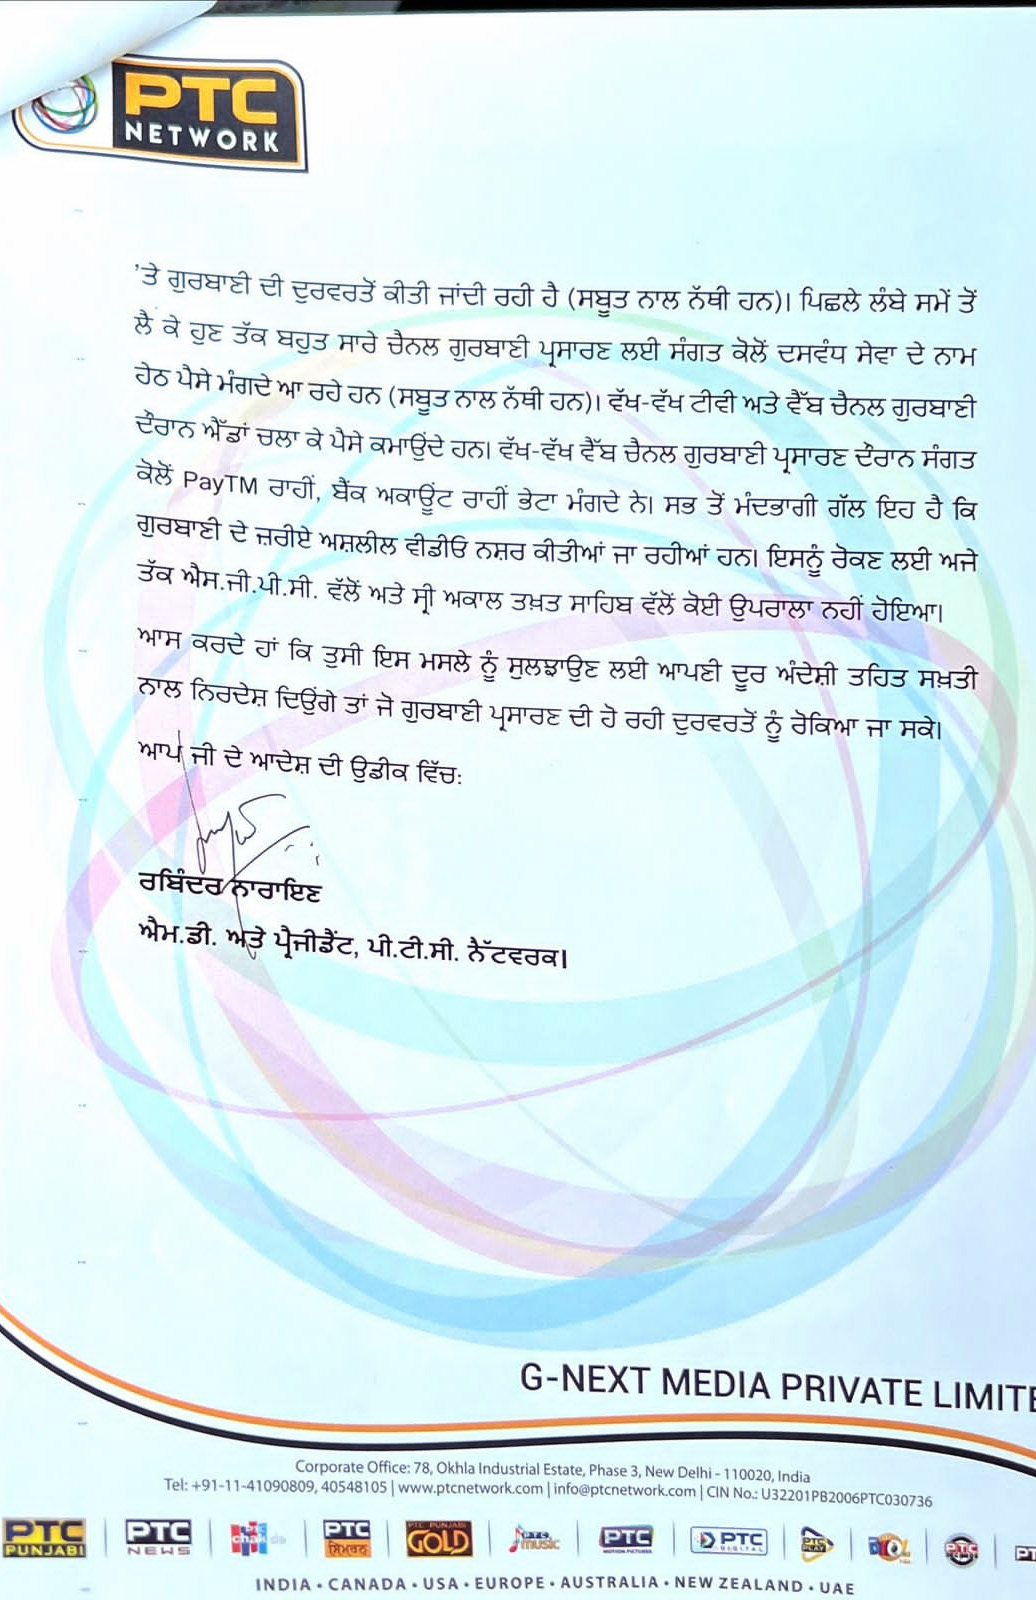 PTC
NETWORK
'ਤੇ ਗੁਰਬਾਣੀ ਦੀ ਦੁਰਵਰਤੋਂ ਕੀਤੀ ਜਾਂਦੀ ਰਹੀ ਹੈ (ਸਬੂਤ ਨਾਲ ਨੱਥੀ ਹਨ)। ਪਿਛਲੇ ਲੰਬੇ ਸਮੇਂ ਤੋਂ
ਲੈ ਕੇ ਹੁਣ ਤੱਕ ਬਹੁਤ ਸਾਰੇ ਚੈਨਲ ਗੁਰਬਾਣੀ ਪ੍ਰਸਾਰਣ ਲਈ ਸੰਗਤ ਕੋਲੋਂ ਦਸਵੰਧ ਸੇਵਾ ਦੇ ਨਾਮ
ਹੇਠ ਪੈਸੇ ਮੰਗਦੇ ਆ ਰਹੇ ਹਨ (ਸਬੂਤ ਨਾਲ ਨੱਥੀ ਹਨ)। ਵੱਖ-ਵੱਖ ਟੀਵੀ ਅਤੇ ਵੈੱਬ ਚੈਨਲ ਗੁਰਬਾਣੀ
ਦੌਰਾਨ ਐੱਡਾਂ ਚਲਾ ਕੇ ਪੈਸੇ ਕਮਾਉਂਦੇ ਹਨ। ਵੱਖ-ਵੱਖ ਵੈੱਬ ਚੈਨਲ ਗੁਰਬਾਣੀ ਪ੍ਰਸਾਰਣ ਦੌਰਾਨ ਸੰਗਤ
ਕੋਲੋਂ PayTM ਰਾਹੀਂ, ਬੈਂਕ ਅਕਾਊਂਟ ਰਾਹੀਂ ਭੇਟਾ ਮੰਗਦੇ ਨੇ। ਸਭ ਤੋਂ ਮੰਦਭਾਗੀ ਗੱਲ ਇਹ ਹੈ ਕਿ
ਗੁਰਬਾਣੀ ਦੇ ਜ਼ਰੀਏ ਅਸ਼ਲੀਲ ਵੀਡੀਓ ਨਸ਼ਰ ਕੀਤੀਆਂ ਜਾ ਰਹੀਆਂ ਹਨ। ਇਸਨੂੰ ਰੋਕਣ ਲਈ ਅਜੇ
ਤੱਕ ਐਸ.ਜੀ.ਪੀ.ਸੀ. ਵੱਲੋਂ ਅਤੇ ਸ੍ਰੀ ਅਕਾਲ ਤਖ਼ਤ ਸਾਹਿਬ ਵੱਲੋਂ ਕੋਈ ਉਪਰਾਲਾ ਨਹੀਂ ਹੋਇਆ।
ਆਸ ਕਰਦੇ ਹਾਂ ਕਿ ਤੁਸੀ ਇਸ ਮਸਲੇ ਨੂੰ ਸੁਲਝਾਉਣ ਲਈ ਆਪਣੀ ਦੂਰ ਅੰਦੇਸ਼ੀ ਤਹਿਤ ਸਖ਼ਤੀ
ਨਾਲ ਨਿਰਦੇਸ਼ ਦਿਉਂਗੇ ਤਾਂ ਜੋ ਗੁਰਬਾਣੀ ਪ੍ਰਸਾਰਣ ਦੀ ਹੋ ਰਹੀ ਦੁਰਵਰਤੋਂ ਨੂੰ ਰੋਕਿਆ ਜਾ ਸਕੇ।
ਆਪ ਜੀ ਦੇ ਆਦੇਸ਼ ਦੀ ਉਡੀਕ ਵਿੱਚ:
ਰਬਿੰਦਰ ਨਾਰਾਇਣ
ਐਮ.ਡੀ. ਅਤੇ ਪ੍ਰੈਜੀਡੈਂਟ, ਪੀ.ਟੀ.ਸੀ. ਨੈੱਟਵਰਕ।
G-NEXT MEDIA PRIVATE LIMITE
Corporate Office: 78, Okhla Industrial Estate, Phase 3, New Delhi - 110020, India
Tel: +91-11-41090809, 40548105 | www.ptcnetwork.com | info@ptcnetwork.com | CIN No.: U32201PB2006PTC030736
PTC PUNJABI | PTC NEWS | PTC chak de | PTC ਸਿਮਰਨ | PTC PUNJABI GOLD | PTC music | PTC MOTION PICTURES | PTC DIGITAL | PTC PLAY
INDIA • CANADA • USA • EUROPE • AUSTRALIA • NEW ZEALAND • UAE